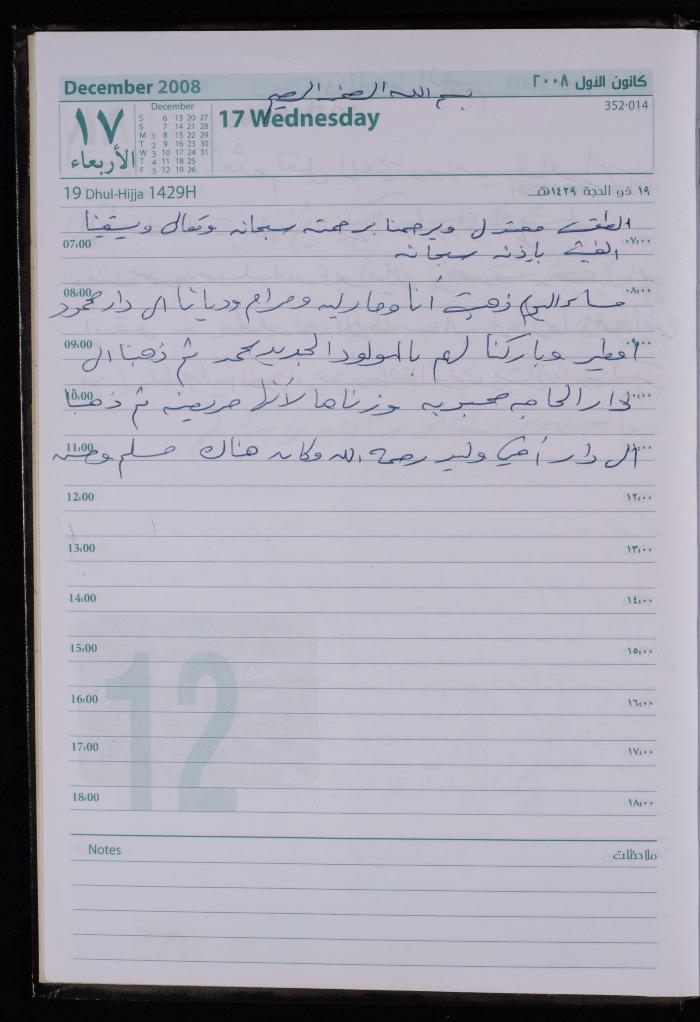 December 2008
كانون الأول ٢٠٠٨
بسم الله الرحمن الرحيم
352-014
17 Wednesday
١٧
الأربعاء
December
S 6 13 20 27
S 7 14 21 28
M 1 8 15 22 29
T 2 9 16 23 30
W 3 10 17 24 31
T 4 11 18 25
F 5 12 19 26
19 Dhul-Hijja 1429H
١٩ ذو الحجة ١٤٢٩هـ
الطقس معتدل ويرحمنا برحمته سبحانه وتعالى ويسقينا
07:00 ٠٧:٠٠
الغيث بإذنه سبحانه
08:00 ٠٨:٠٠
مساء اليوم ذهبت أنا وماريه ومرام وديانا الى دار محمود
09:00 ٠٩:٠٠
افطير وباركنا لهم بالمولود الجديد محمد ثم ذهبنا الى
10:00 ١٠:٠٠
دار الحاجه محبوبه وزرناها لأنها مريضه ثم ذهبنا
11:00 ١١:٠٠
الى دار أخي وليد رحمه الله وكان هناك مسلم
12:00 ١٢:٠٠
13:00 ١٣:٠٠
14:00 ١٤:٠٠
15:00 ١٥:٠٠
16:00 ١٦:٠٠
17:00 ١٧:٠٠
18:00 ١٨:٠٠
12
Notes ملاحظات